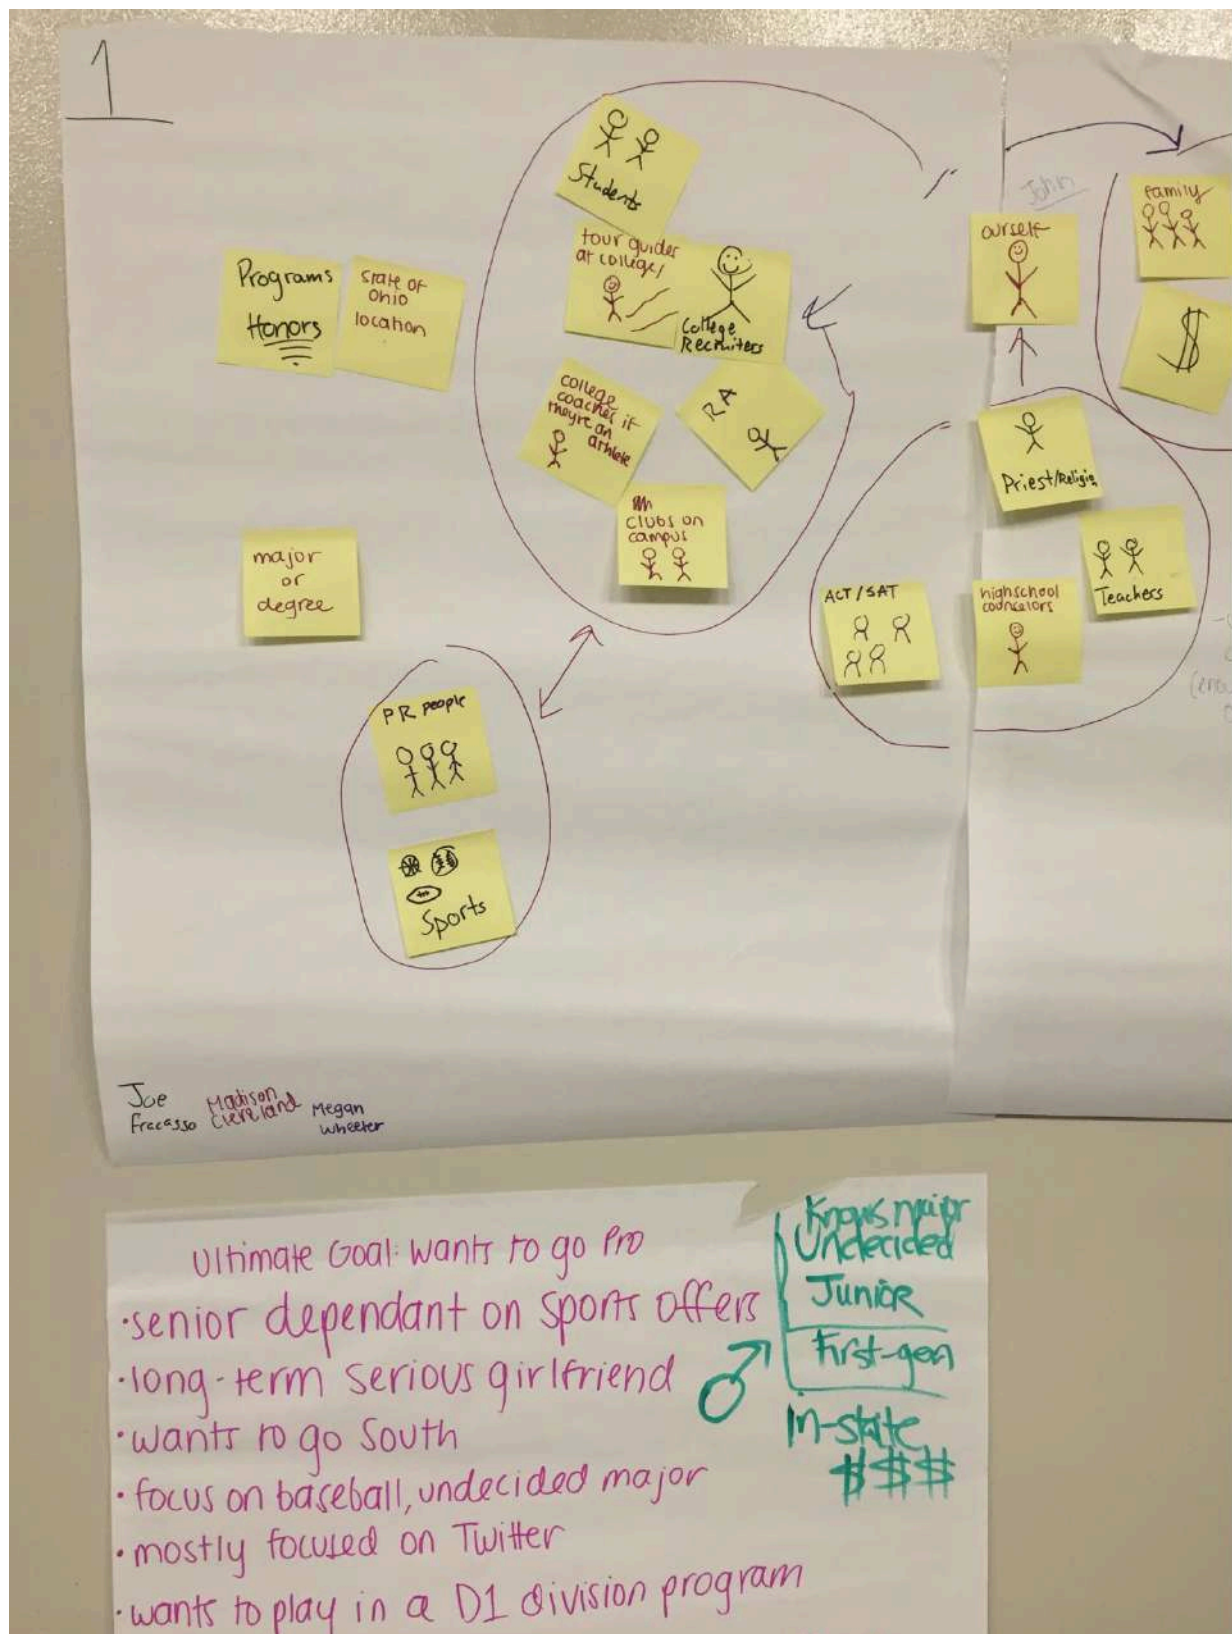 1
Students
tour guides
at college/
College
Recruiters
Programs
Honors
state of
Ohio
location
college
coaches if
they're an
athlete
RA
clubs on
campus
John
ourself
family
$
Priest/Religio
Teachers
highschool
councelors
ACT/SAT
major
or
degree
PR people
Sports
Joe
Fracasso
Madison
Cleveland
Megan
Wheeler
Ultimate Goal: wants to go Pro
• senior dependant on sports offers
• long-term serious girlfriend
• wants to go South
• focus on baseball, undecided major
• mostly focused on Twitter
• wants to play in a D1 division program
Knows major
Undecided
Junior
First-gen
In-state
$$$